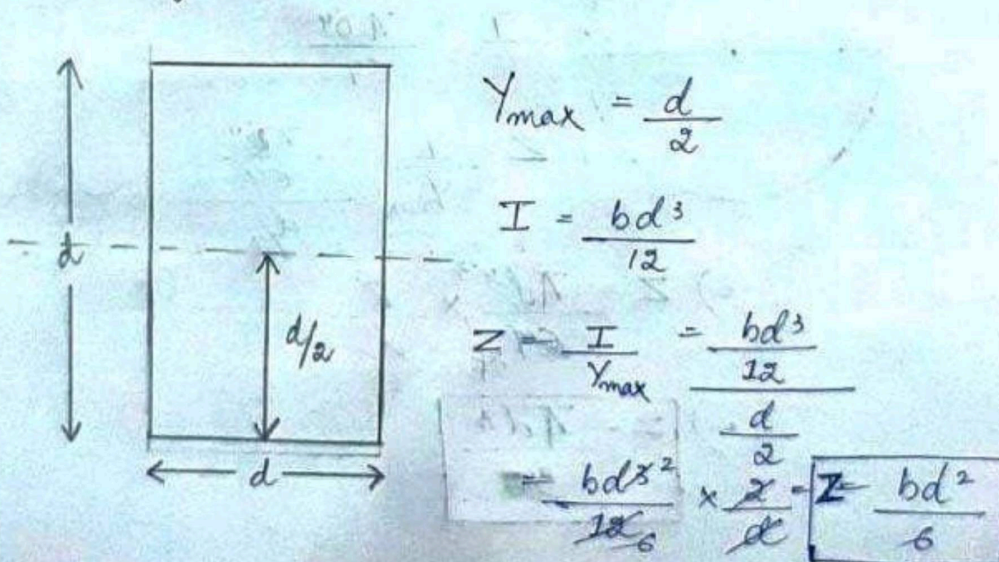 Ymax = d/2
I = bd³/12
d
d/2
d
Z = I/Ymax = bd³/12 / d/2
= bd³²/12 6 × 2/d = Z = bd²/6